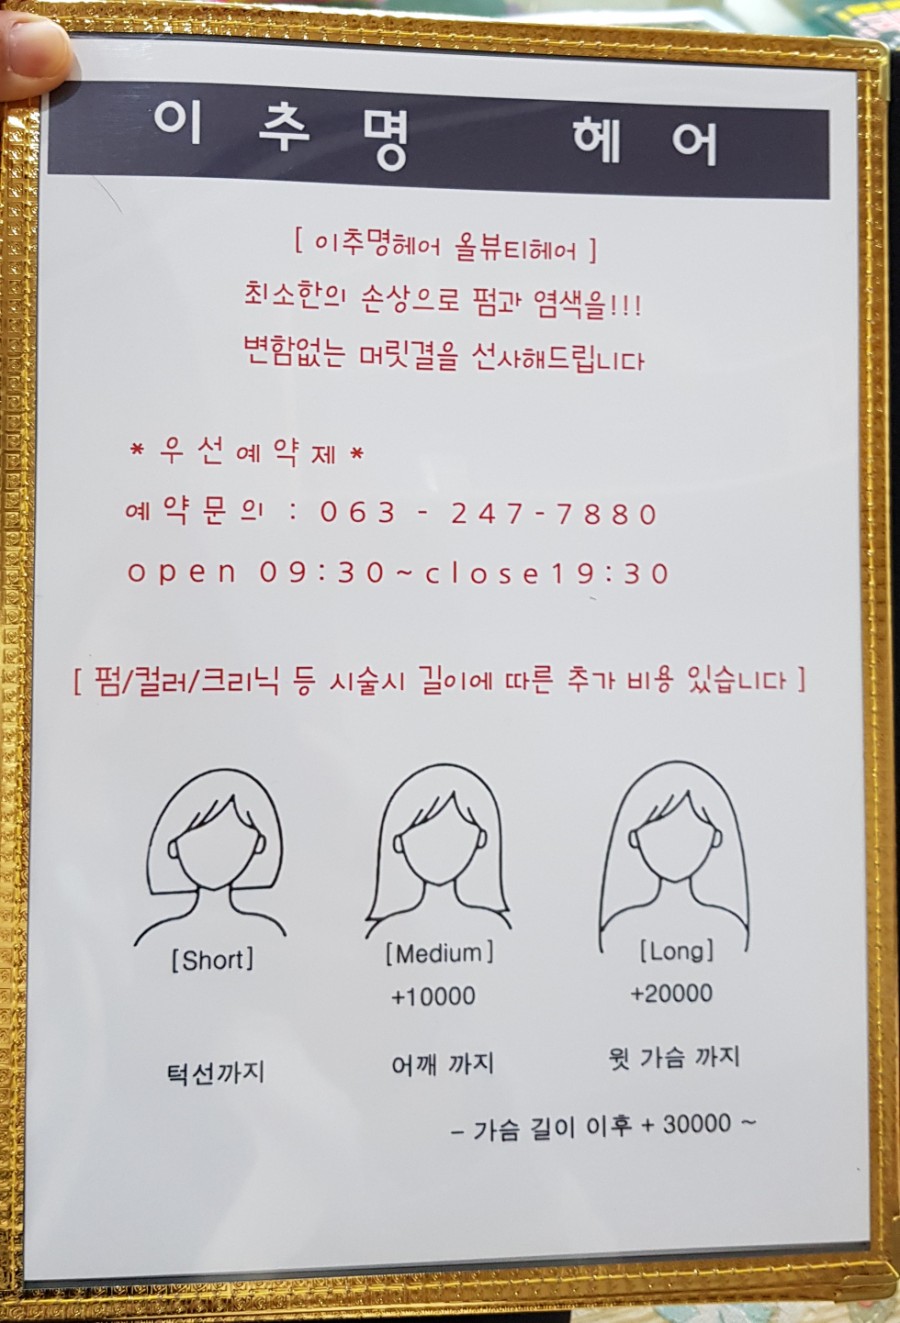 이 추 명 헤 어
[ 이추명헤어 올뷰티헤어 ]
최소한의 손상으로 펌과 염색을!!!
변함없는 머릿결을 선사해드립니다
* 우 선 예 약 제 *
예 약 문 의 : 0 6 3 - 2 4 7 - 7 8 8 0
o p e n 0 9 : 3 0 ~ c l o s e 1 9 : 3 0
[ 펌/컬러/크리닉 등 시술시 길이에 따른 추가 비용 있습니다 ]
[Short] [Medium] [Long]
+10000 +20000
턱선까지 어깨 까지 윗 가슴 까지
– 가슴 길이 이후 + 30000 ~